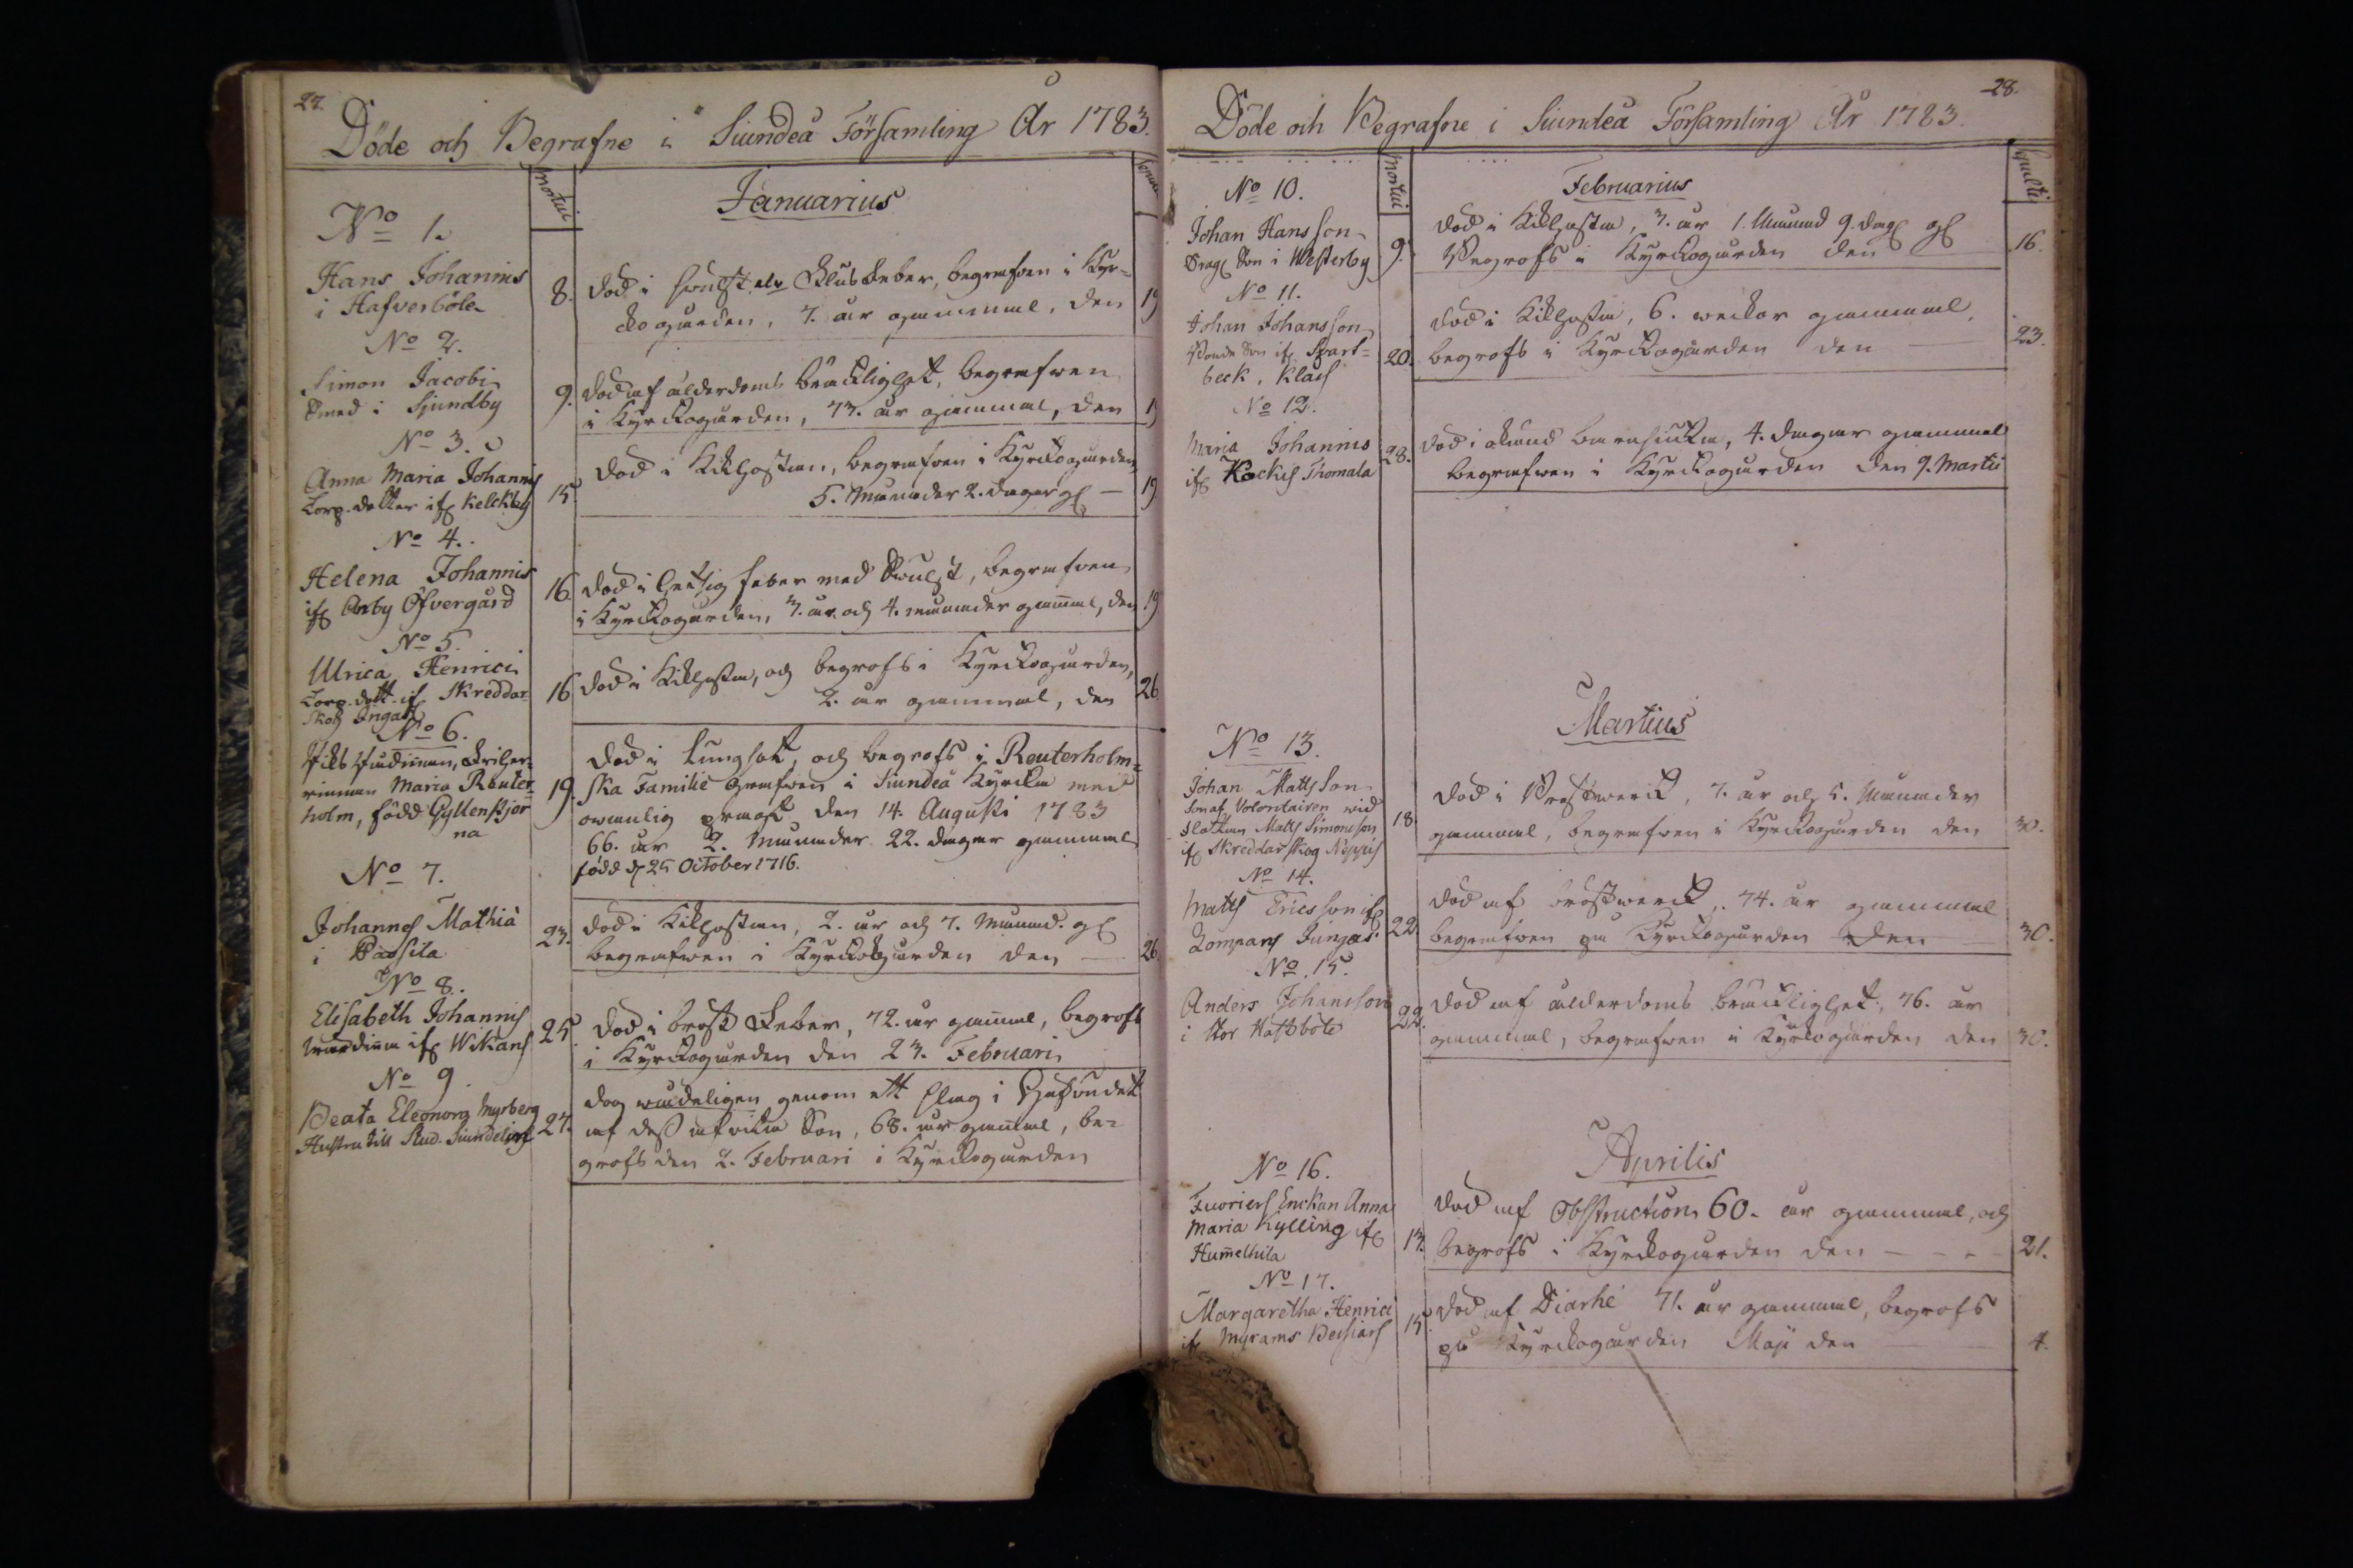 27.
Döde och Begrafne i Siundeå Församling År 1783.
mortui
Januarius
No 1.
Hans Johannis
i Hafverböle
8.
död i swulst elr Flusfeber, begrafven i Kyr-
kogården, 7. år gammal, den
19
No 2.
Simon Jacobi
Smed i Sjundby
9.
död af ålderdoms bräcklighet, begrafwen
i Kyrckogården, 73. år gammal, den
19
No 3.
Anna Maria Johannis
Torp. dotter ifr Kelckby
15
död i Kikhostan, begrafven i Kyrckogården
5. Månader 2. dagar gl —
19
No 4.
Helena Johannis
ifr Anby Öfvergård
16
död i hetsig feber med Swulst, begrafven
i Kyrckogården, 3. år och 4. månader gammal, den
19
No 5.
Ulrica Henrici
Torp. dott. ifr Skreddar-
skog Ingals
16
död i Kikhosta, och begrofs i Kyrckogården,
2. år gammal, den
26
No 6.
rinnan Maria Reuter-
holm, född Gyllenstjer
na
19.
död i Lungsot, och begrofs i Reuterholm-
ska Familie Grafven i Siundeå Kyrcka med
owanlig pragt den 14. Augusti 1783
66. år 2. Månader 22. dagar gammal
född d 25 October 1716.
No 7.
Johannes Mathiæ
i Passila
23.
död i Kikhostan, 2. år och 7. Månad. gl
begrafwen i Kyrckogården den —
26.
No 8.
Elisabeth Johannis
Wärdinna ifr Wikars
25.
död i bröst Feber, 72. år gammal, begrofs
i Kyrckogården den 23. Februari
No 9.
Beata Eleonora Myrberg
Hustru till Stud. Siundeling
27.
dog wådeligen genom ett slag i Hufvudet
af dess afvita Son, 68. år gammal, be-
grofs den 2. Februari i Kyrckogården
28.
Döde och Begrafne i Siundeå Församling År 1783.
mortui
Februarius
Sepulti
No 10.
Johan Hansson
Drag. Son i Westerby
9.
död i Kikhosta, 3. år 1. Månad 9. dag. gl
Begrofs i Kyrckogården den
16.
No 11.
Johan Johansson
Bonde Son ifr Svart-
beck, Klas
20.
död i Kikhosta, 6. weckor gammal,
begrofs i Kyrckogården den
23.
No 12.
Maria Johannis
ifr Kockis Thomala
28.
död i okänd barnsjucka, 4. dagar gammal
begrafwen i Kyrckogården den 9. Martii
Martius
No 13.
Johan Mattsson
Son af Volontairen wid
Flottan Matts Simonsson
ifr Skreddarskog Nissis
18.
död i Bröstwerck, 7. år och 5. Månader
gammal, begrafwen i Kyrckogården den
30.
No 14.
Matts Ericsson ifr
Kompars Jungas.
22.
död af bröstwerck, 74. år gammal
begrafwen på Kyrckogården den
30.
No 15.
Anders Johansson
i Stor Haftböle
22.
död af ålderdoms bräcklighet, 76. år
gammal, begrafwen i Kyrkogården den
30.
Aprilis
No 16.
Fuoriers Enckan Anna
Maria Kylling ifr
Hummelkila
13.
död af Obstruction 60. år gammal, och
begrofs i Kyrckogården den — - -
21.
No 17.
Margaretha Henrici
ifr Myrans Beisars
15.
död af Diarhé 71. år gammal, begrofs
på Kyrckogården Maji den
4.